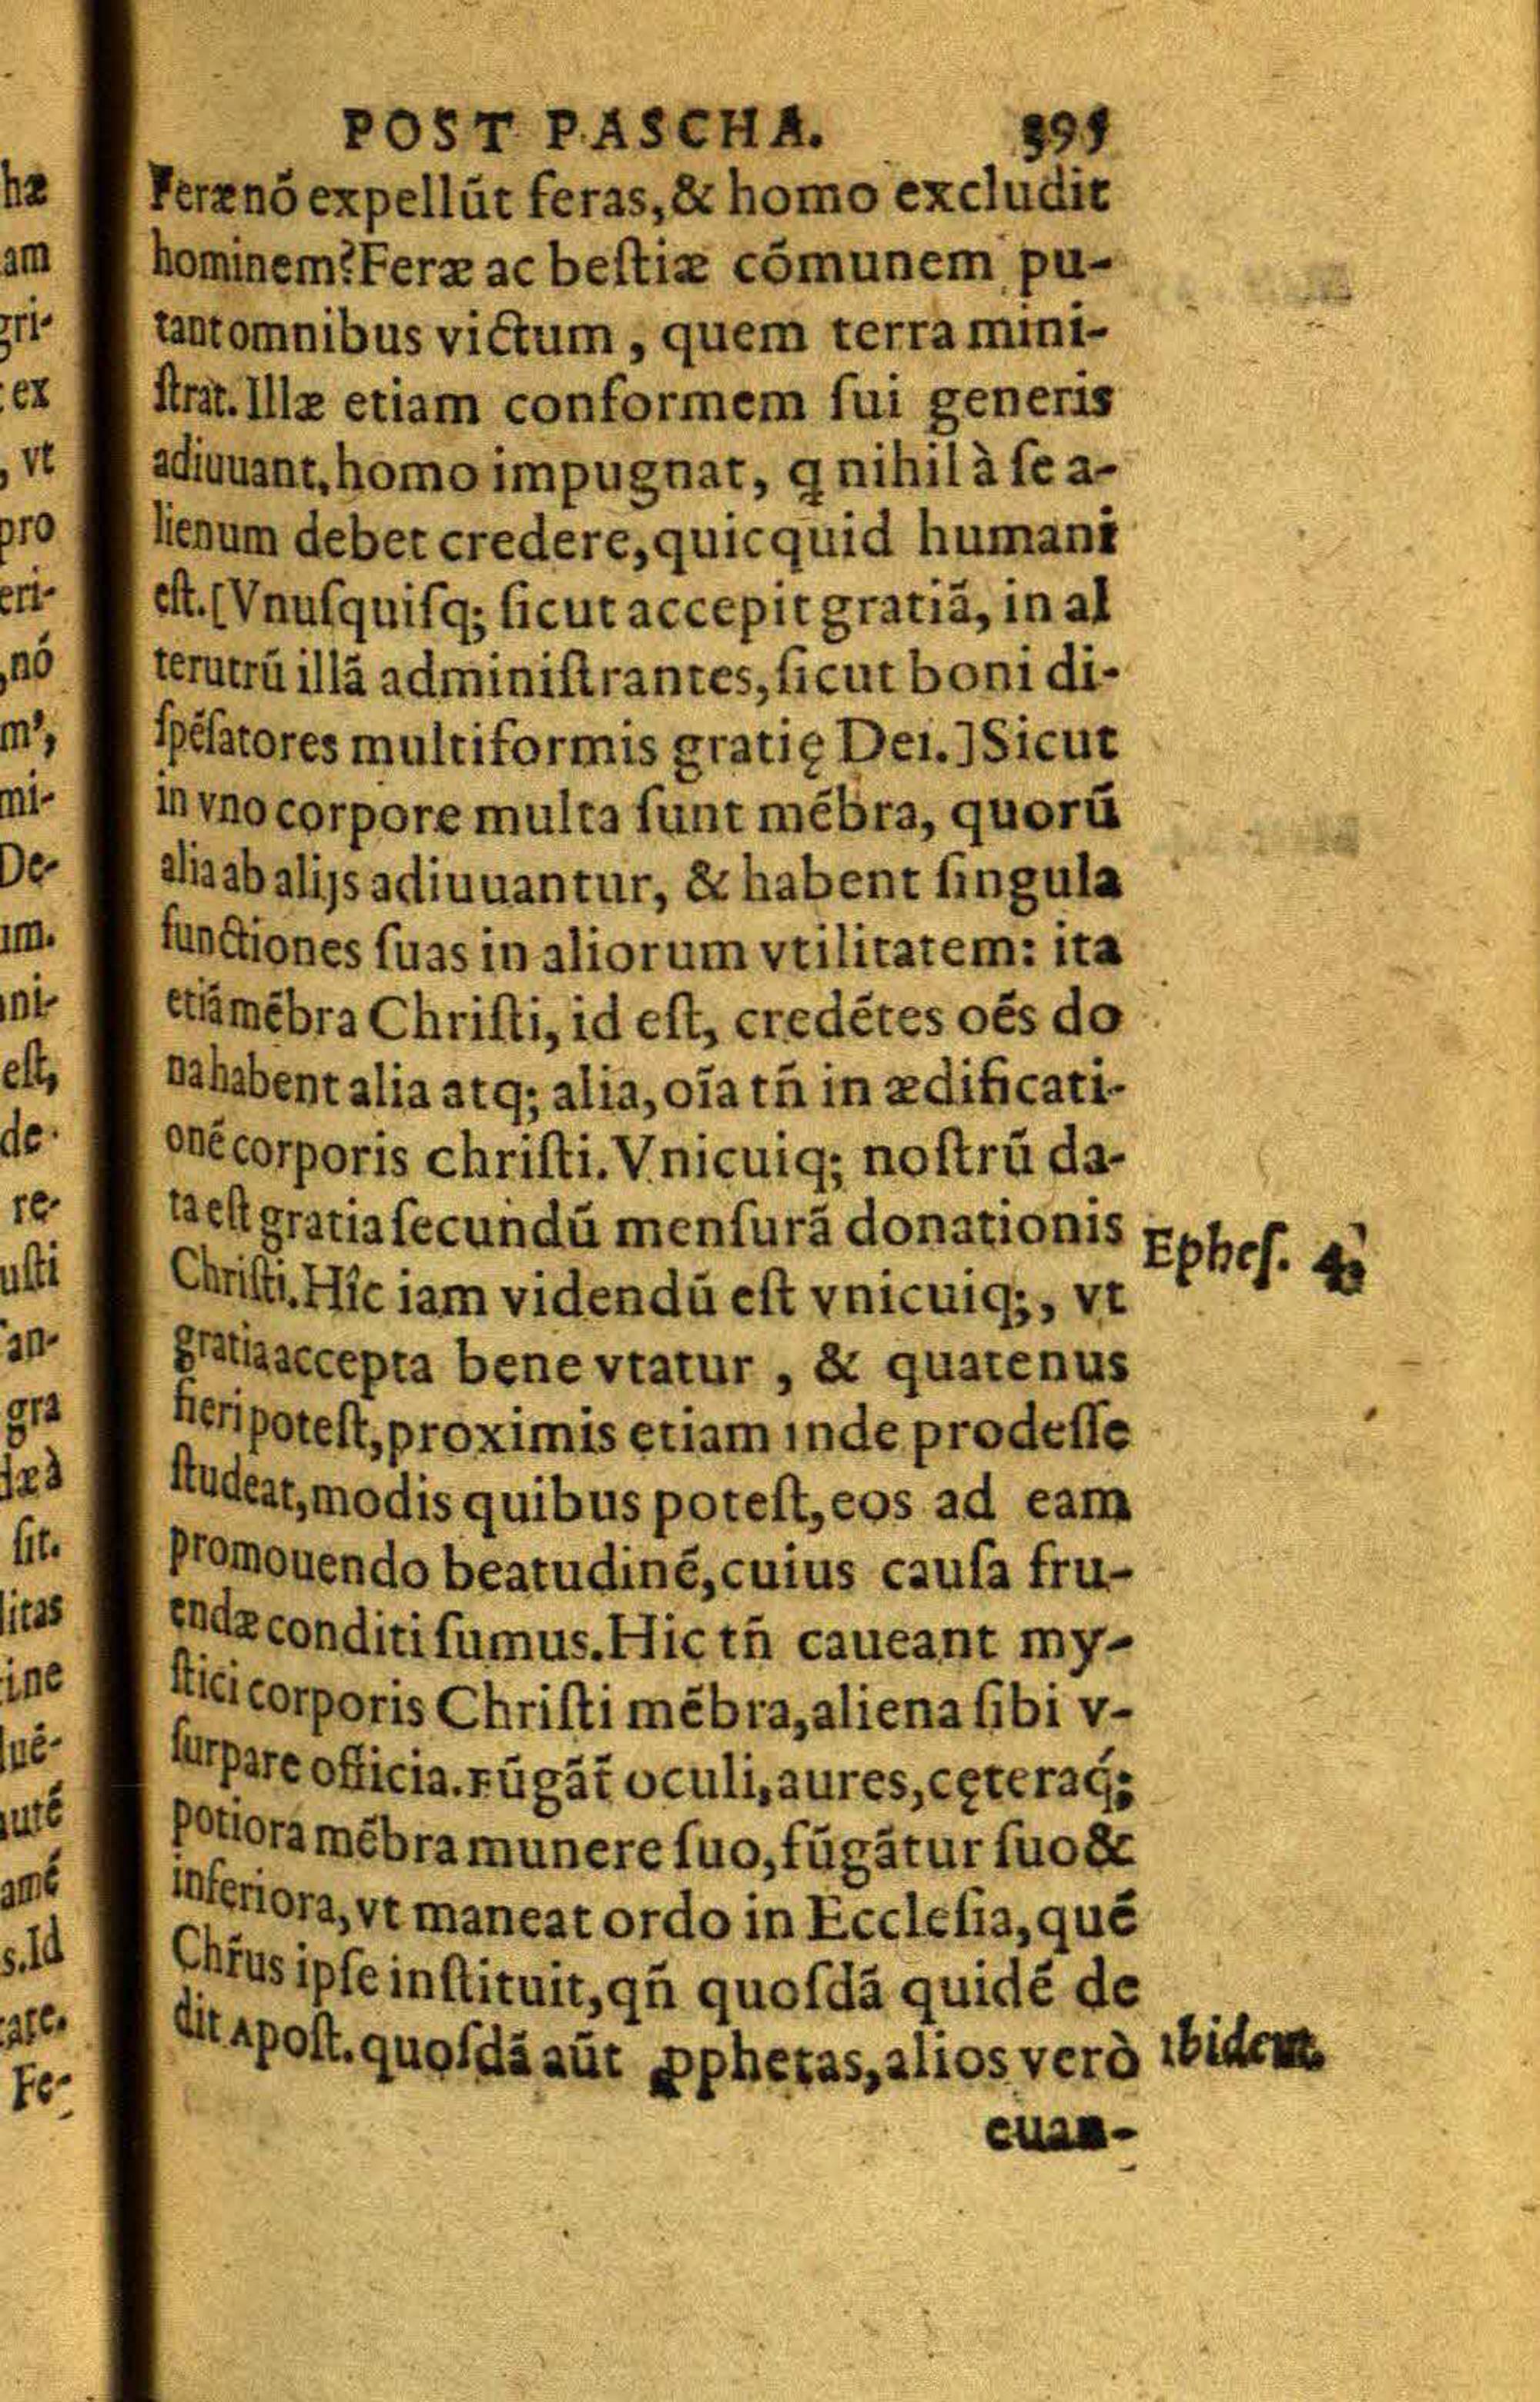 POST PASCHA. 395
Feræ nō expellūt feras, & homo excludit
hominem? Feræ ac beſtiæ cōmunem pu-
tant omnibus victum, quem terra mini-
ſtrat. Illæ etiam conformem ſui generis
adiuuant, homo impugnat, ꝗ nihil à ſe a-
lienum debet credere, quicquid humani
eſt. [Vnuſquiſq; ſicut accepit gratiā, in al
terutrū illā adminiſtrantes, ſicut boni di-
ſpēſatores multiformis gratię Dei.] Sicut
in vno corpore multa ſunt mēbra, quorū
alia ab alijs adiuuantur, & habent ſingula
functiones ſuas in aliorum vtilitatem: ita
etiā mēbra Chriſti, id eſt, credētes oēs do
na habent alia atq; alia, oīa tñ in ædificati-
onē corporis chriſti. Vnicuiq; noſtrū da-
ta eſt gratia ſecundū menſurā donationis
Epheſ. 4.
Chriſti. Hîc iam videndū eſt vnicuiq;, vt
gratia accepta bene vtatur, & quatenus
fieri poteſt, proximis etiam inde prodeſſe
ſtudeat, modis quibus poteſt, eos ad eam
promouendo beatudinē, cuius cauſa fru-
endæ conditi ſumus. Hic tñ caueant my-
ſtici corporis Chriſti mēbra, aliena ſibi v-
ſurpare officia. Fūgāt̄ oculi, aures, cęteraq́;
potiora mēbra munere ſuo, fūgātur ſuo &
inferiora, vt maneat ordo in Eccleſia, quē
Chr̄us ipſe inſtituit, qñ quoſdā quidē de
dit Apoſt. quoſdā aūt ꝓphetas, alios verò
ibidem.
euan-
hæ
am
gri-
ex
, vt
pro
eri-
,nō
m',
mi-
De-
im.
ni-
eſt,
de-
re-
uſti
an-
gra
dæ à
ſit.
litas
ine
uē-
utē
amē
s. Id
are.
Fe-